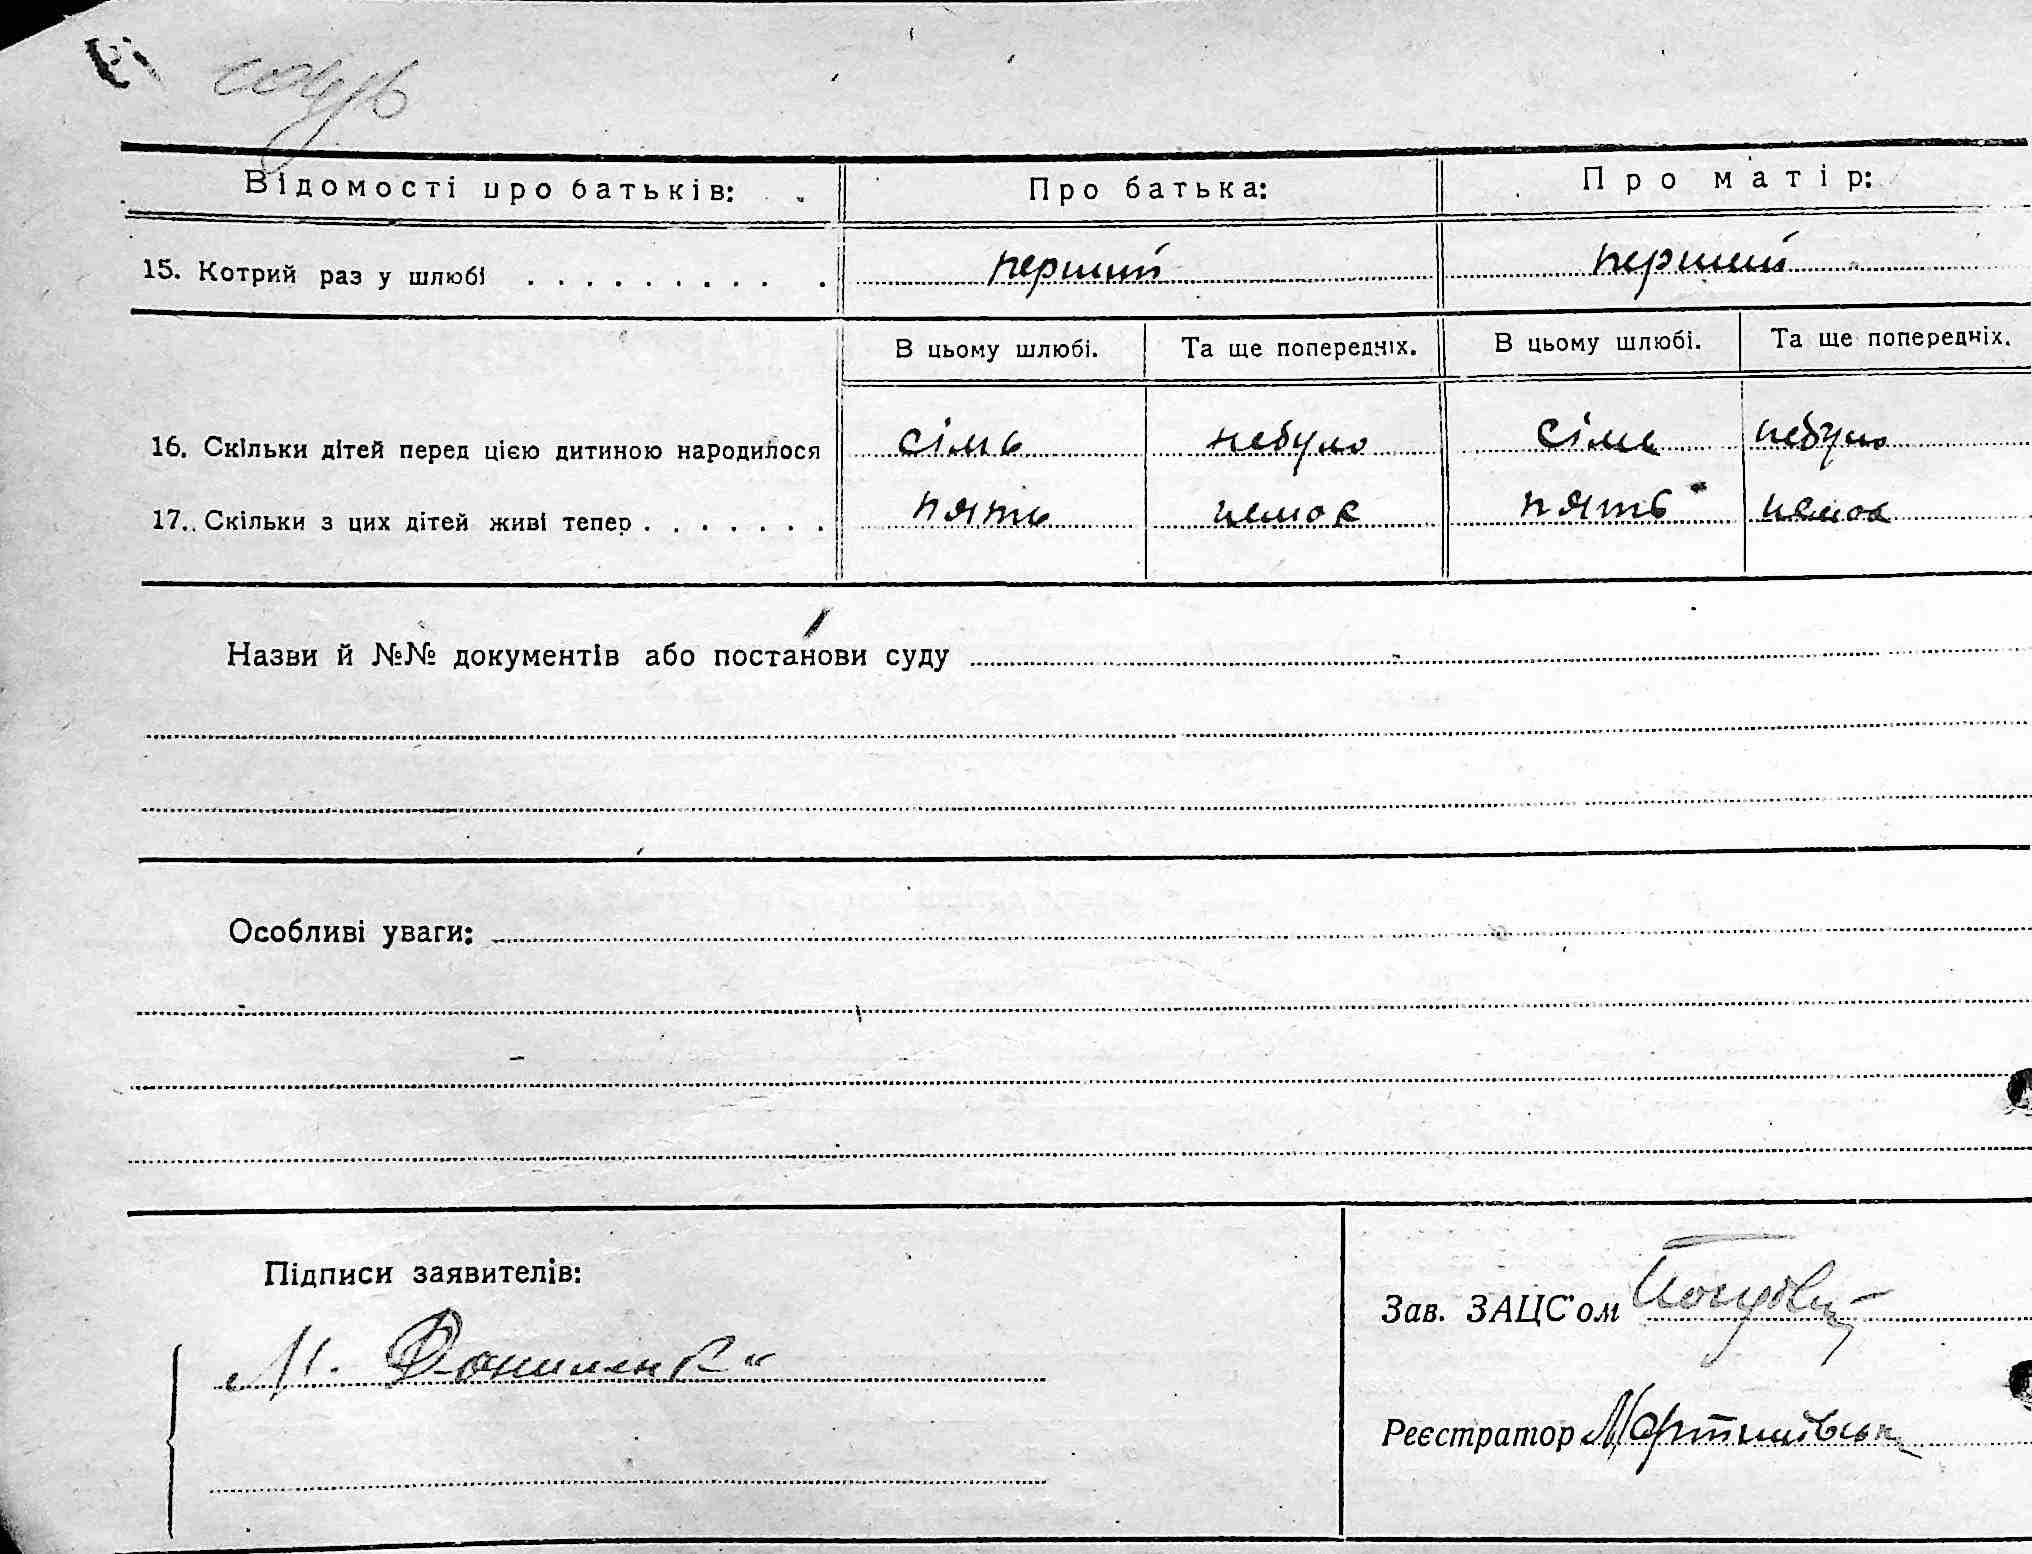 Відомості про батьків: Про батька: Про матір:
15. Котрий раз у шлюбі . . . . . . . . . . перший перший
В цьому шлюбі. Та ще попередніх. В цьому шлюбі. Та ще попередніх.
16. Скільки дітей перед цією дитиною народилося сімь небуло сімь небуло
17. Скільки з цих дітей живі тепер . . . . . . . пять немає пять немає
Назви й №№ документів або постанови суду
Особливі уваги:
Підписи заявителів:
Зав. ЗАЦС'ом
М. Даниленко
Реєстратор